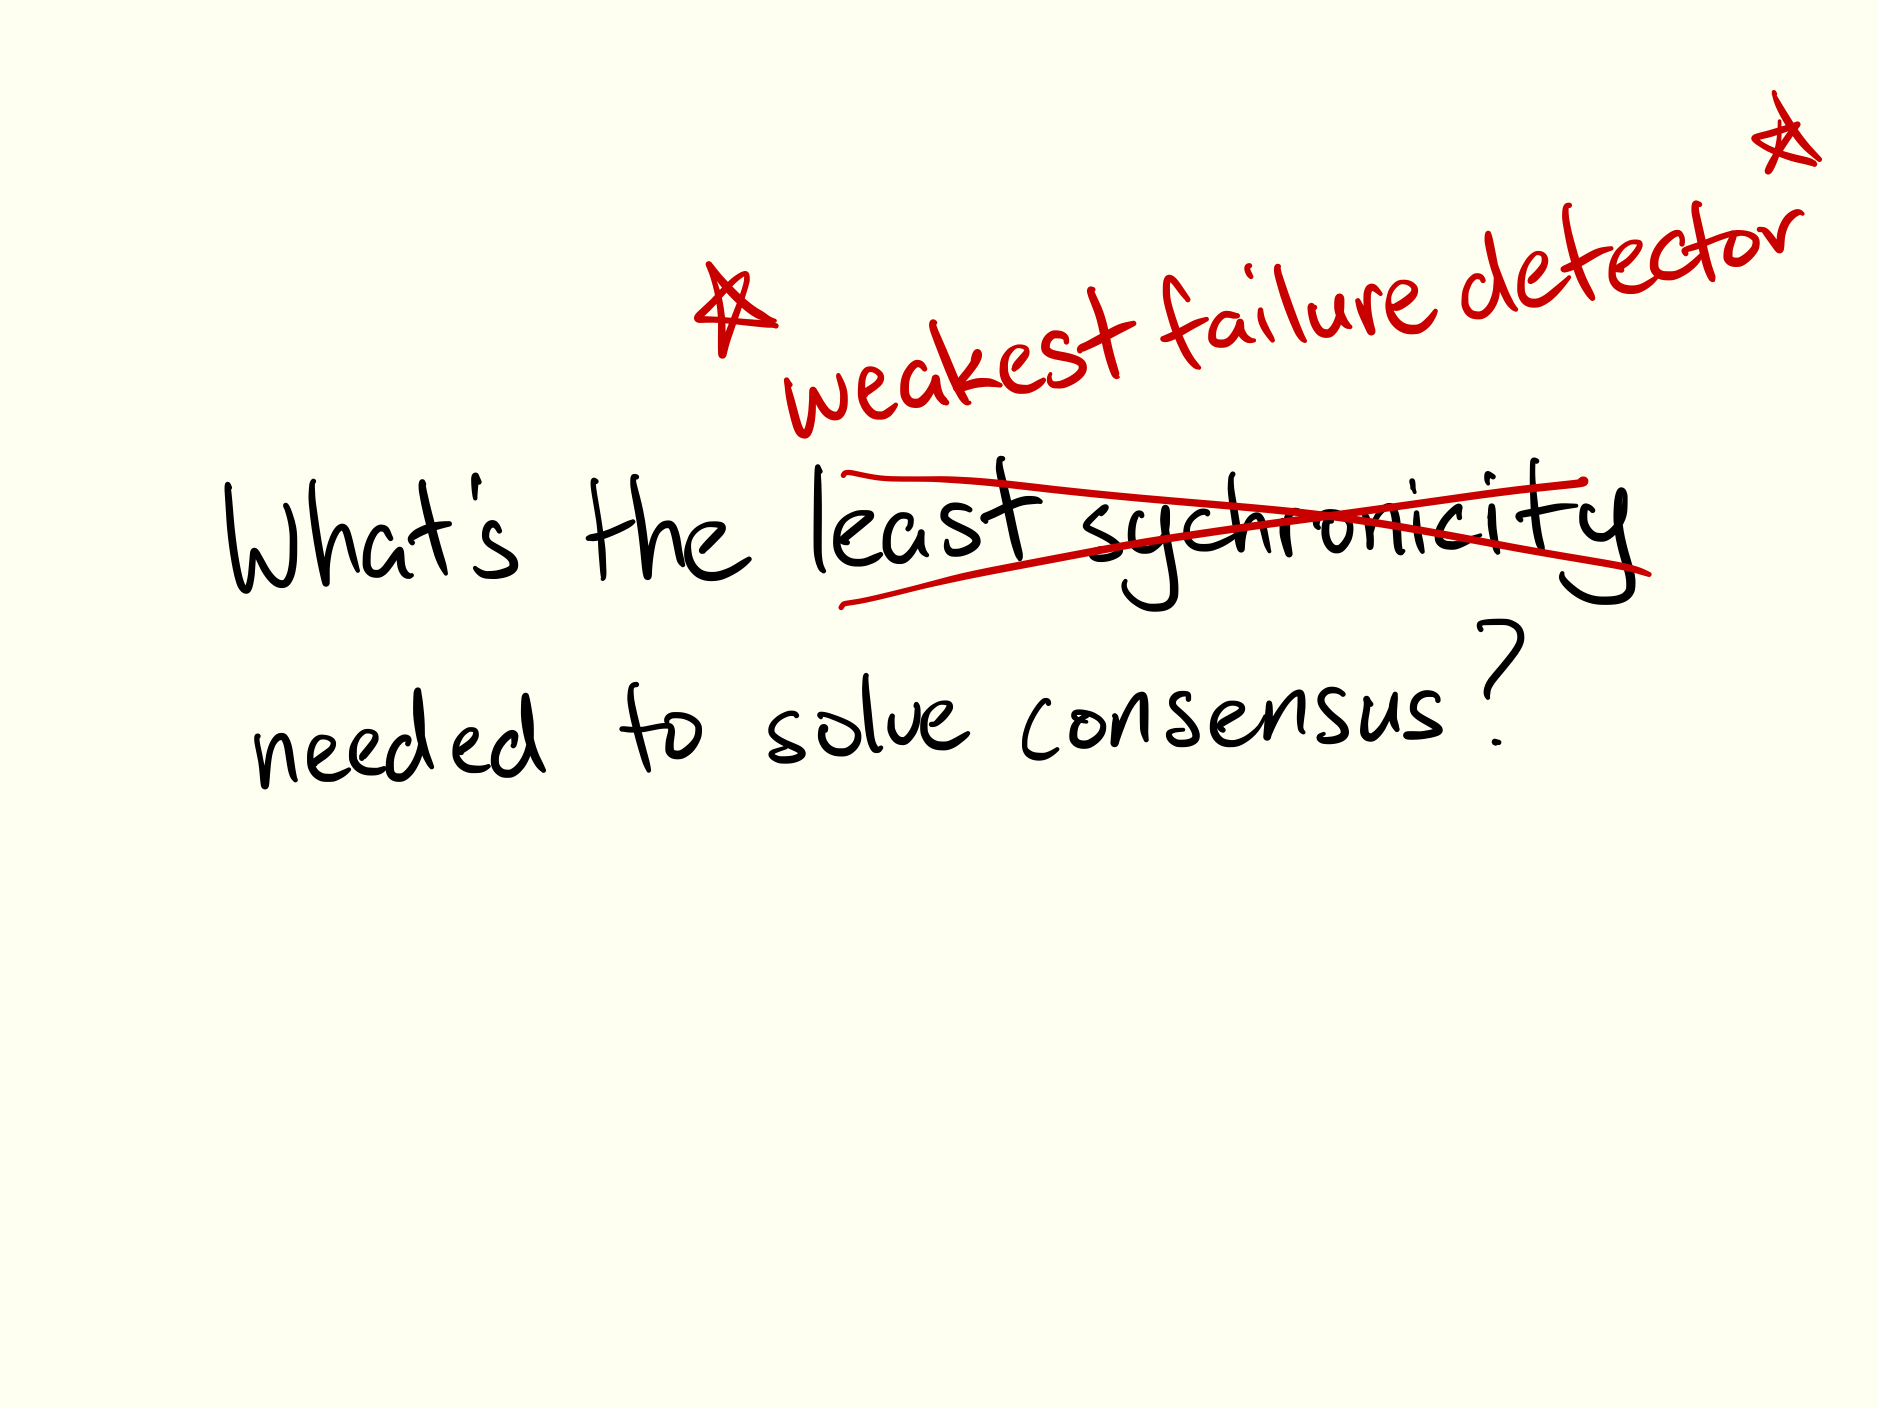 weakest failure detector
What's the least sychronicity
needed to solve consensus?